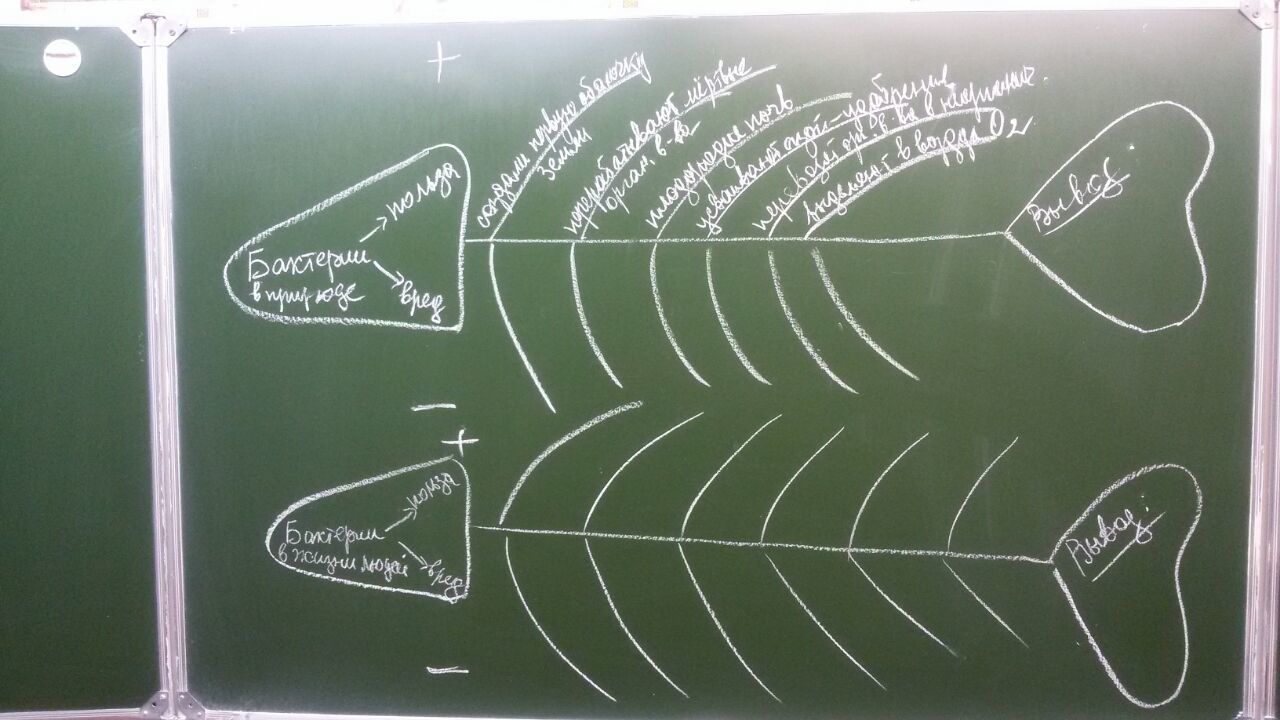 +
создали первую оболочку
земли
перерабатывают мёртвые
орган. в-ва
плодородие почв
усваивают азот - удобрение
переводят орг. в-ва в неорганич.
выделяют в воздух O2
Бактерии
в природе
польза
вред
Вывод:
—
+
Бактерии
в жизни людей
польза
вред
Вывод:
—